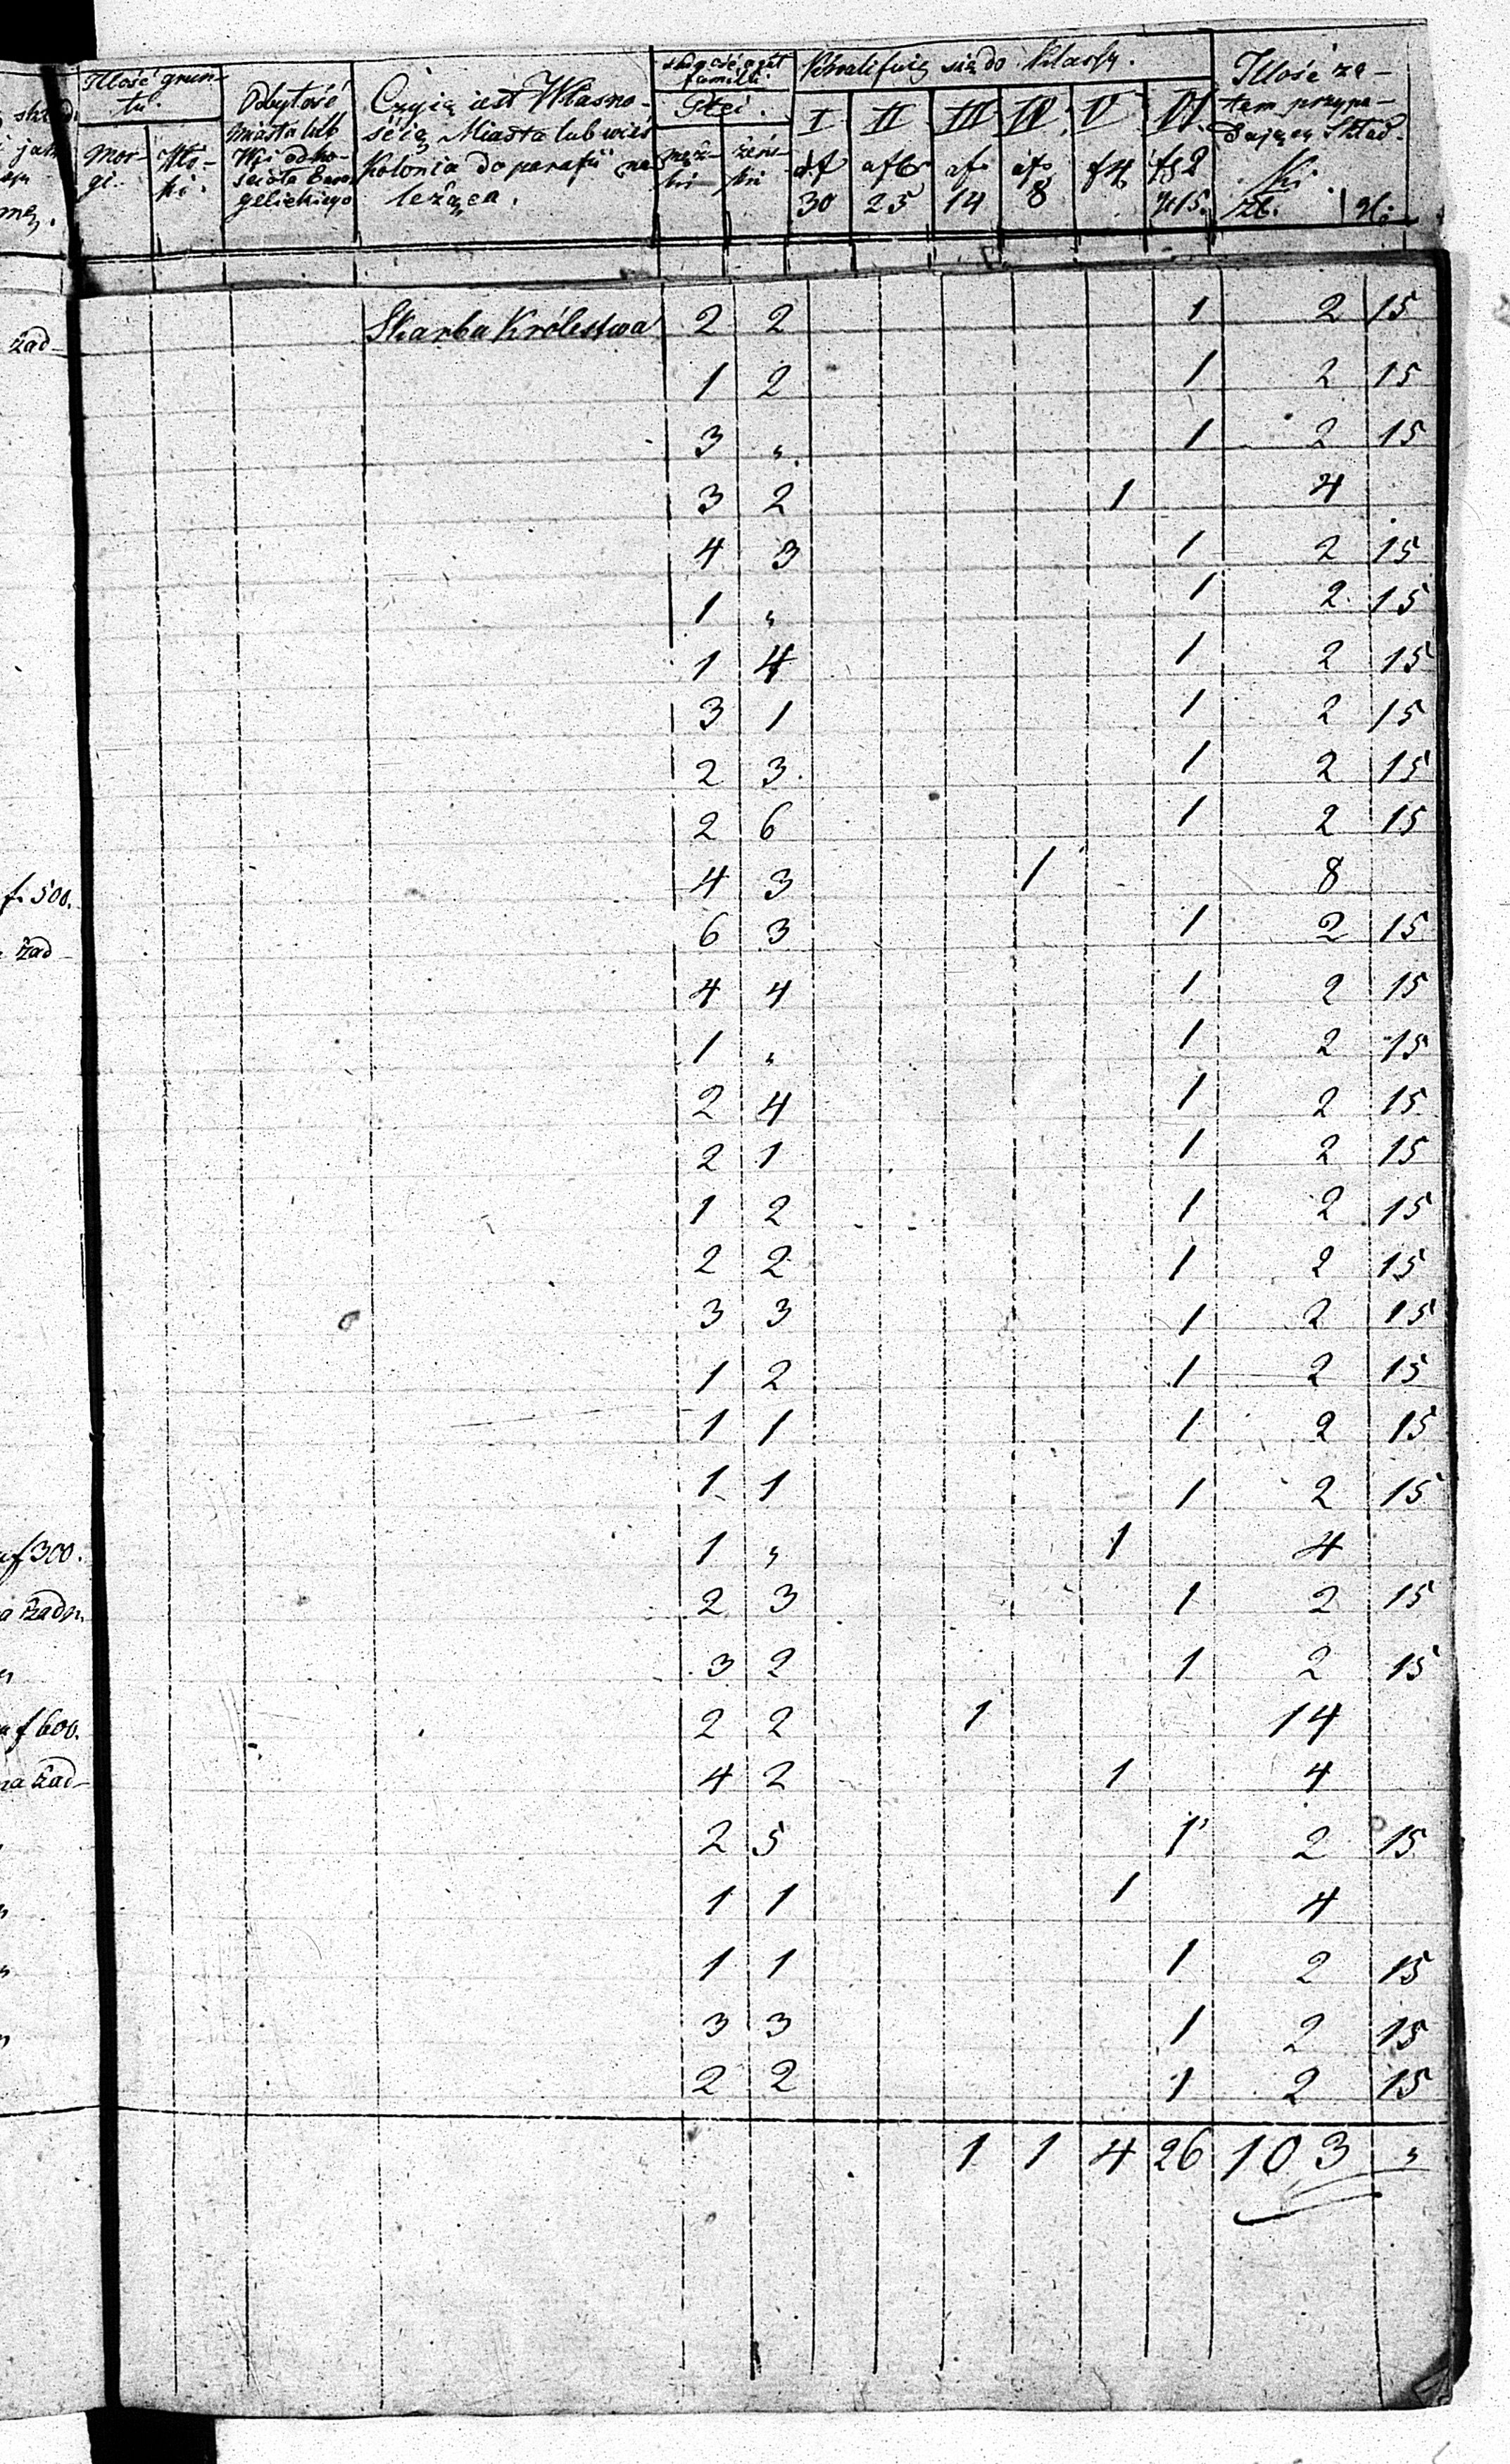 Illość grun-
tu.
Mor-
gi.
Odbytość
miasta lub
Wsi odko-
gelickiego
Czyią iest Własno-
ścią Miasta lub wieś
Kolonia do parafii na
leżąca.
familii
Płci.
męz-
ki
żeńs-
ki
Kwalifuię się do Klassy.
I II III IV V VI
af af af af f4 f 2
30 25 14 8 g 15.
Illość za-
tem przypa-
dającej Skład-
ki.
zł. | gr.
żad
f. 500.
żad
f 300.
a żadn.
f 600.
na żad-
Skarba Królestwa 2 2 1 2 15
1 2 1 2 15
3 " 1 2 15
3 2 1 4
4 3 1 2 15
1 " 1 2 15
1 4 1 2 15
3 1 1 2 15
2 3 1 2 15
2 6 1 2 15
4 3 1 8
6 3 1 2 15
4 4 1 2 15
1 " 1 2 15
2 4 1 2 15
2 1 1 2 15
1 2 1 2 15
2 2 1 2 15
3 3 1 2 15
1 2 1 2 15
1 1 1 2 15
1 1 1 2 15
1 " 1 4
2 3 1 2 15
3 2 1 2 15
2 2 1 14
4 2 1 4
2 5 1 2 15
1 1 1 4
1 1 1 2 15
3 3 1 2 15
2 2 1 2 15
1 1 4 26 103 "